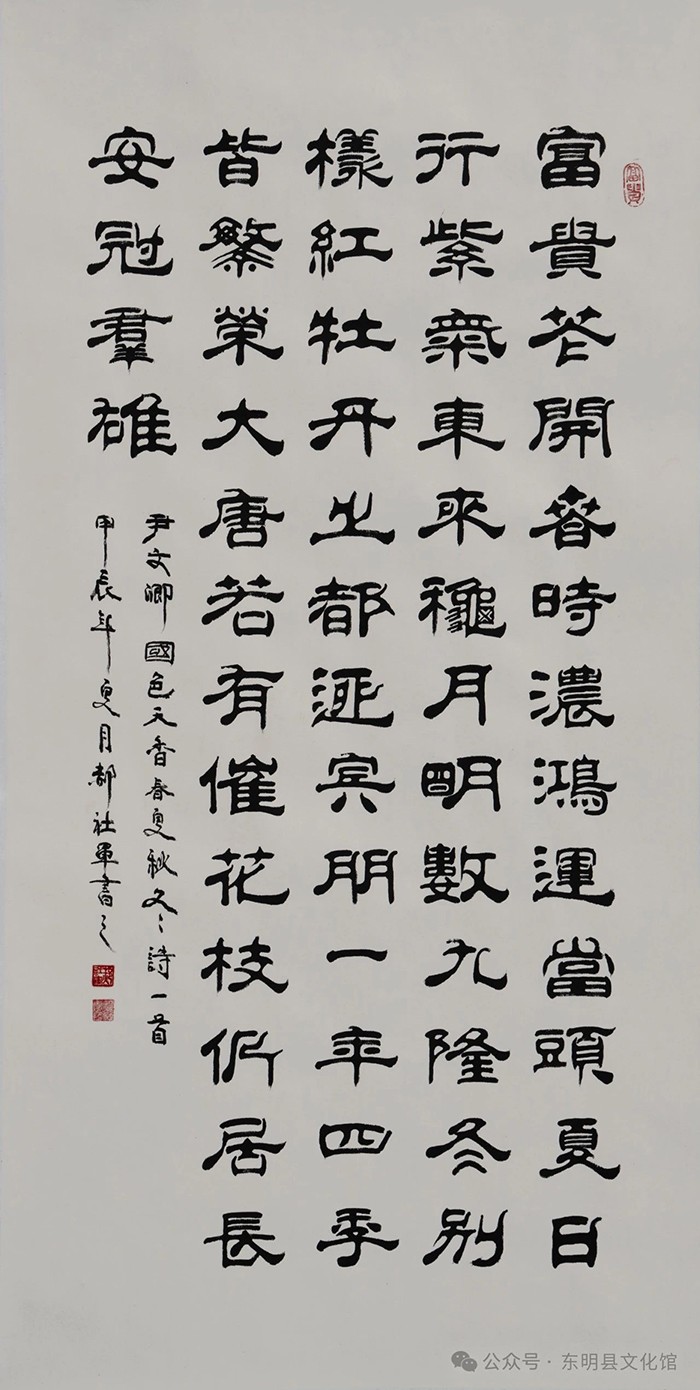 富貴花開春時濃鴻運當頭夏日
行紫氣東來龝月明數九隆冬別
樣紅牡丹之都迎賓朋一年四季
皆繁榮大唐若有催花枝居長
安冠羣雄
尹文卿國色天香春夏秋冬詩一首
甲辰年夏月社軍書之
公众号·东明县文化馆